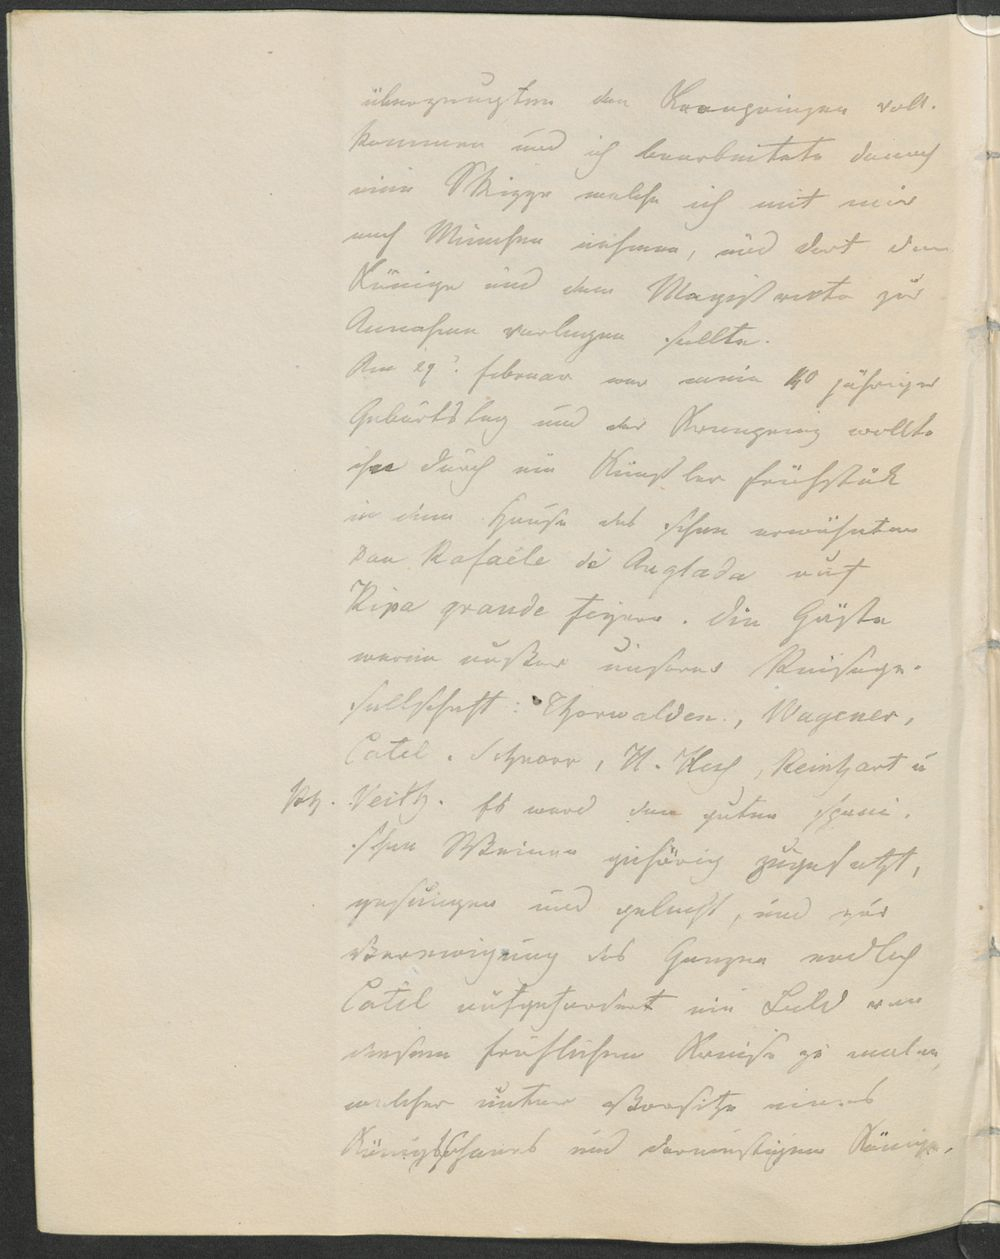 überzeugten den Kronprinzen voll-
kommen und ich bearbeitete danach
eine Skizze welche ich mit mir
nach München nehmen, und dort dem
Könige und dem Magistrate zur
Annahme vorlegen sollte.
Am 29t. februar war mein 40 jähriger
Geburtstag und der Kronprinz wollte
ihn durch ein Künstler frühstück
in dem Hause des schon erwähnten
Don Rafaële di Anglada auf
Ripa grande feyern. Die Gäste
waren außer unserer Reisege-
sellschaft: Thorwalden., Wagener,
Catel. Schnorr, H. Heß, Reinhart u
Veith. Es ward den guten spani-
schen Weinen gehörig zugesetzt,
gesungen und gelacht, und zur
Verewigung des Ganzen endlich
Catel aufgefordert ein Bild von
diesem fröhlichen Kreise zu malen,
welcher unter Vorsitze eines
Königssohnes und dereinstigen Königs,